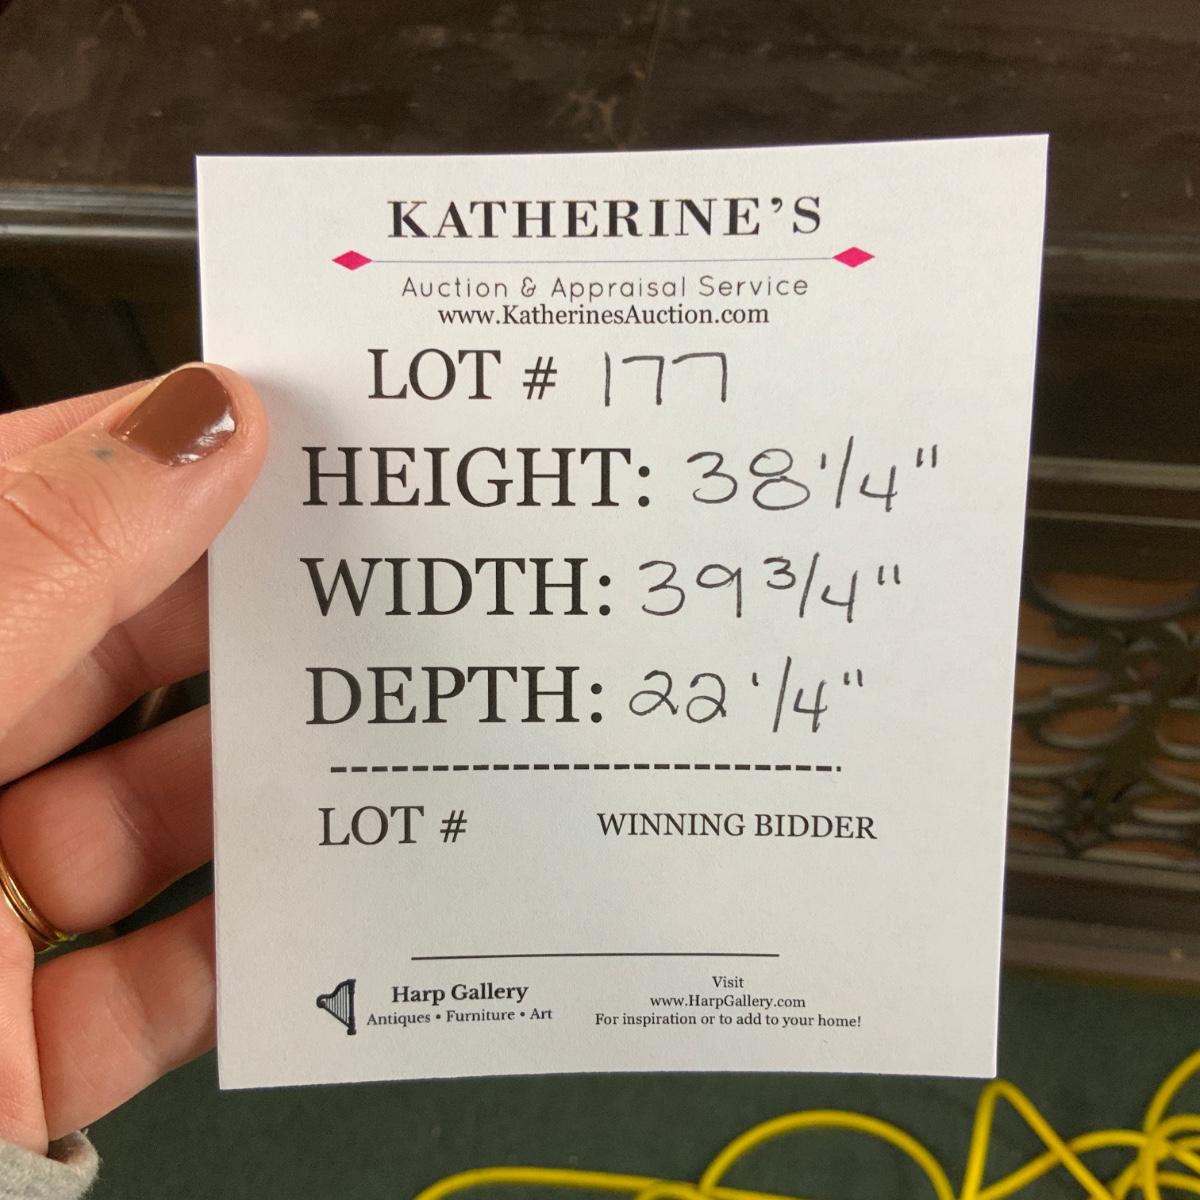 KATHERINE'S
Auction & Appraisal Service
www.KatherinesAuction.com
LOT # 177
HEIGHT: 38 1/4"
WIDTH: 39 3/4"
DEPTH: 22 1/4"
LOT # WINNING BIDDER
Harp Gallery
Antiques • Furniture • Art
Visit
www.HarpGallery.com
For inspiration or to add to your home!